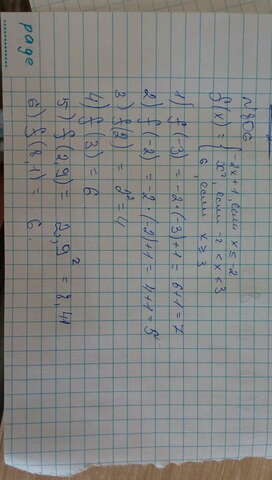 page
№806
f(x) = { -2x+1, если x ≤ -2
x², если -2 < x < 3
6, если x ≥ 3
1) f(-3) = -2·(-3)+1 = 6+1 = 7
2) f(-2) = -2·(-2)+1 = 4+1 = 5
3) f(2) = 2² = 4
4) f(3) = 6
5) f(2,9) = 2,9² = 8,41
6) f(8,1) = 6.